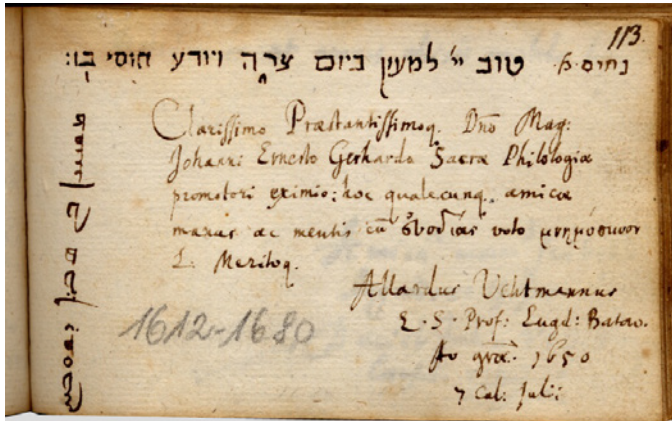 113.
נחום .א. טוב יי׳ למעוז ביום צרה ויודע חוסי בו:
Clarissimo Præstantissimoq. Dno Mag:
Johanni Ernesto Gerhardo Sacræ Philologiæ
promotori eximio; hoc qualecunq. amicæ
manus ac mentis cū voto μνημόσυνον
L. Meritoq.
Allardus Uchtmannus
L. S. Prof: Lugd: Batav.
Ao græ. 1650
7 Cal: Julii
1612-1680